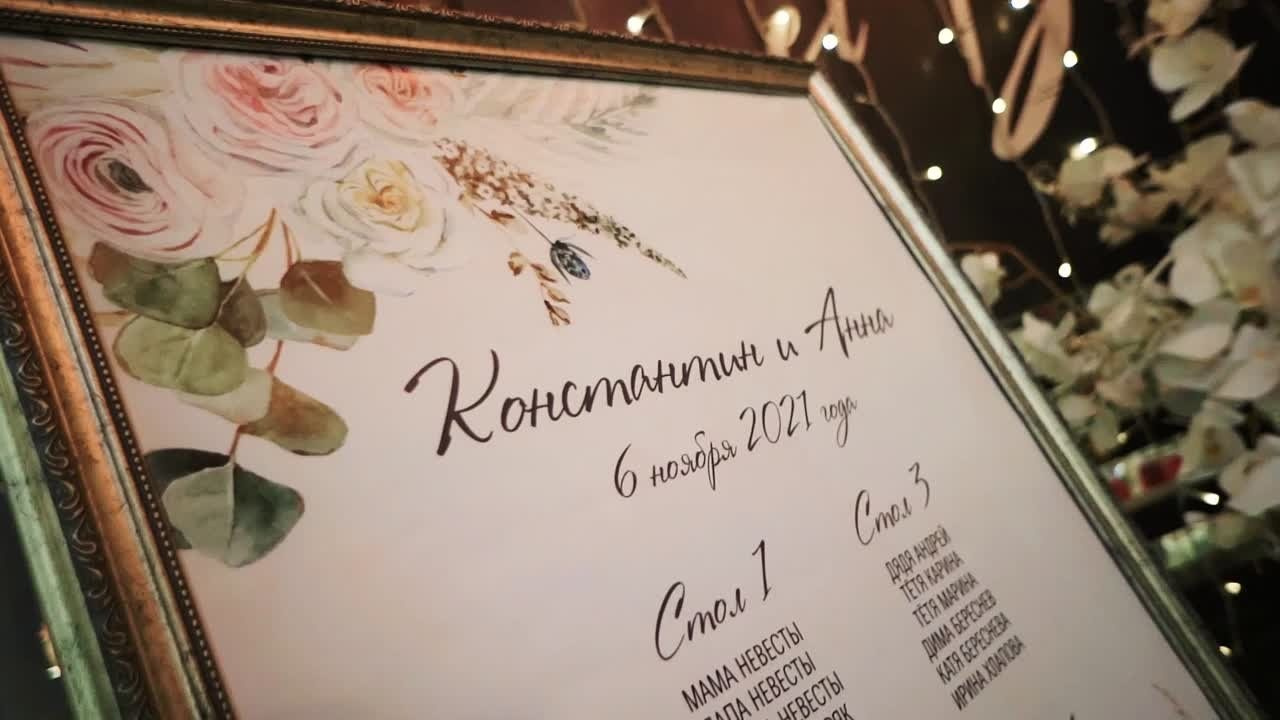 Константин и Анна
6 ноября 2021 года
Стол 1
МАМА НЕВЕСТЫ
ПАПА НЕВЕСТЫ
НЕВЕСТЫ
Стол 3
ДЯДЯ АНДРЕЙ
ТЁТЯ КАРИНА
ТЁТЯ МАРИНА
ДИМА БЕРЕСНЕВ
КАТЯ БЕРЕСНЕВА
ИРИНА ХЛАПОВА